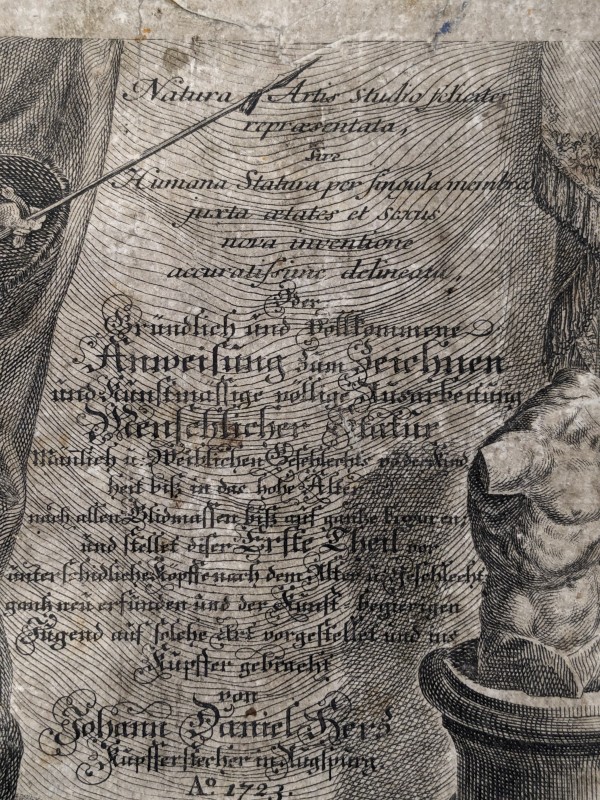 Natura & Artis Studio feliciter
repræsentata,
Sive
Humana Statura per singula membra
juxta ætates et sexus
nova inventione
accuratissime delineata.
Oder
Gründlich und vollkommene
Anweisung zum Zeichnen
und Kunstmassige völlige Ausarbeitung
Menschlicher Statur
Mänlich u. Weiblichen Geschlechts vo der Kind
heit biß in das hohe Alter
nach allen Glidmassen biß auf gantze Figuren
und stellet diser Erste Theil vor
unterschidliche Kopffe nach dem Alter u. Geschlecht
gantz neu erfunden und der Kunst-begierigen
Jugend auf solche Art vorgestellet und ins
Kupffer gebracht
von
Johann Daniel Herz
Kupfferstecher in Augspurg.
Aº 1723.